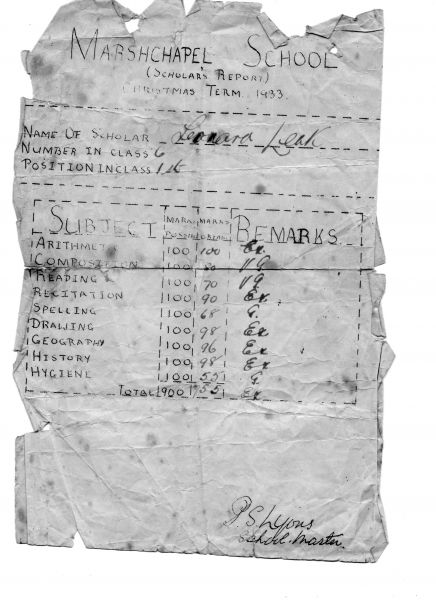 MARSHCHAPEL SCHOOL
(SCHOLAR'S REPORT)
CHRISTMAS TERM 1933.
NAME OF SCHOLAR Leonard Leak
NUMBER IN CLASS 6
POSITION IN CLASS 1st
SUBJECT MARKS POSSIB MARKS REMARKS
ARITHMET 100 100 Ex.
COMPOSITION 100 80 V.G.
READING 100 70 V.G.
RECITATION 100 90 Ex.
SPELLING 100 68 G.
DRAWING 100 98 Ex
GEOGRAPHY 100 96 Ex
HISTORY 100 98 Ex
HYGIENE 100 55 G.
TOTAL 900 755 Ex
P. S. Lyons
School-Master.